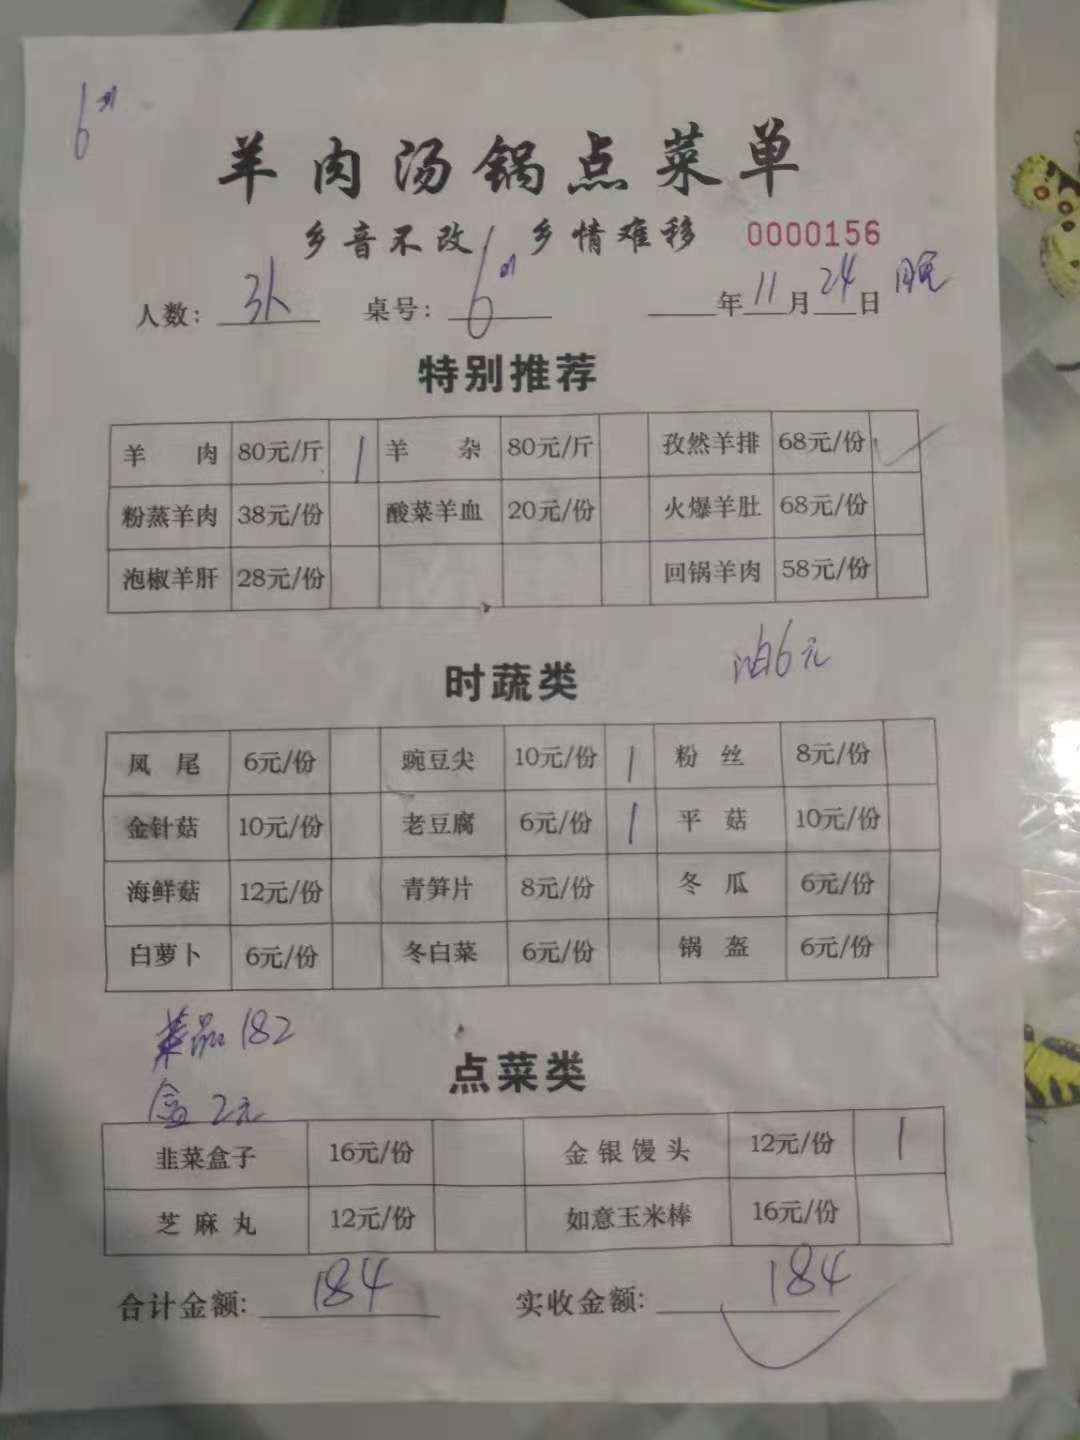 6
羊肉汤锅点菜单
乡音不改 乡情难移 0000156
人数: 3人 桌号: 6 年11月24日
特别推荐
羊肉 80元/斤 1 羊杂 80元/斤 孜然羊排 68元/份 ✓
粉蒸羊肉 38元/份 酸菜羊血 20元/份 火爆羊肚 68元/份
泡椒羊肝 28元/份 回锅羊肉 58元/份
时蔬类 油6元
凤尾 6元/份 豌豆尖 10元/份 1 粉丝 8元/份
金针菇 10元/份 老豆腐 6元/份 1 平菇 10元/份
海鲜菇 12元/份 青笋片 8元/份 冬瓜 6元/份
白萝卜 6元/份 冬白菜 6元/份 锅盔 6元/份
菜品182
点菜类
盒2元
韭菜盒子 16元/份 金银馒头 12元/份 1
芝麻丸 12元/份 如意玉米棒 16元/份
合计金额: 184 实收金额: 184